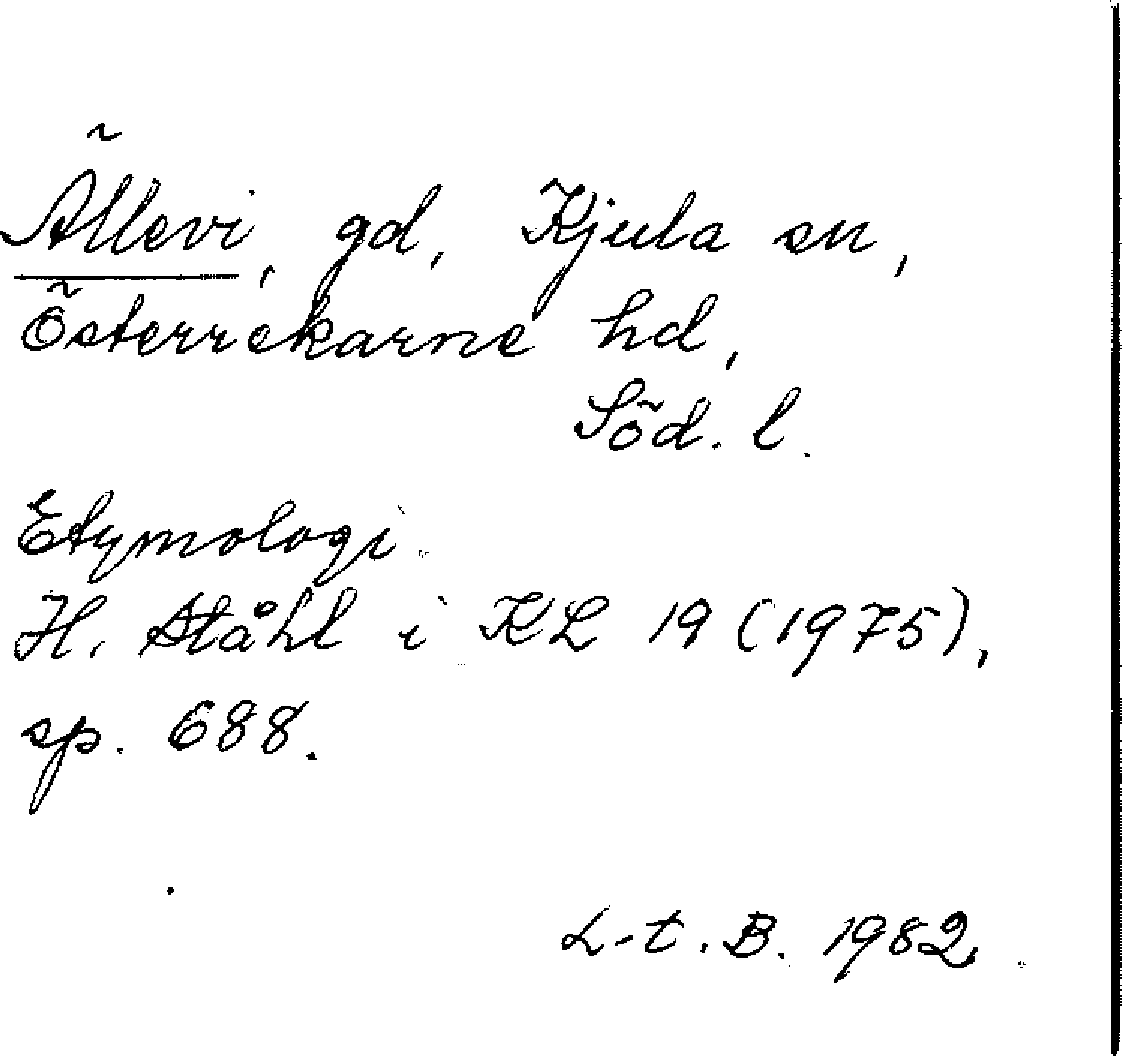 Ällevi, gd, Kjula sn,
Österrekarne hd,
Söd. l.
Etymologi.
H. Ståhl i KL 19 (1975),
sp. 688.
L-t. B. 1982.